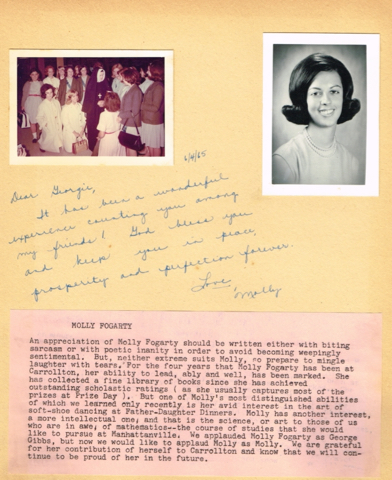 6/4/65
Dear Georgie,
It has been a wonderful
experience counting you among
my friends! God bless you
and keep you in peace,
prosperity and perfection forever.
Love,
Molly
MOLLY FOGARTY
An appreciation of Molly Fogarty should be written either with biting
sarcasm or with poetic inanity in order to avoid becoming weepingly
sentimental. But, neither extreme suits Molly, so prepare to mingle
laughter with tears. For the four years that Molly Fogarty has been at
Carrollton, her ability to lead, ably and well, has been marked. She
has collected a fine library of books since she has achieved
outstanding scholastic ratings ( as she usually captures most of the
prizes at Prize Day ). But one of Molly's most distinguished abilities
of which we learned only recently is her avid interest in the art of
soft-shoe dancing at Father-Daughter Dinners. Molly has another interest,
a more intellectual one; and that is the science, or art to those of us
who are in awe, of mathematics--the course of studies that she would
like to pursue at Manhattanville. We applauded Molly Fogarty as George
Gibbs, but now we would like to applaud Molly as Molly. We are grateful
for her contribution of herself to Carrollton and know that we will con-
tinue to be proud of her in the future.